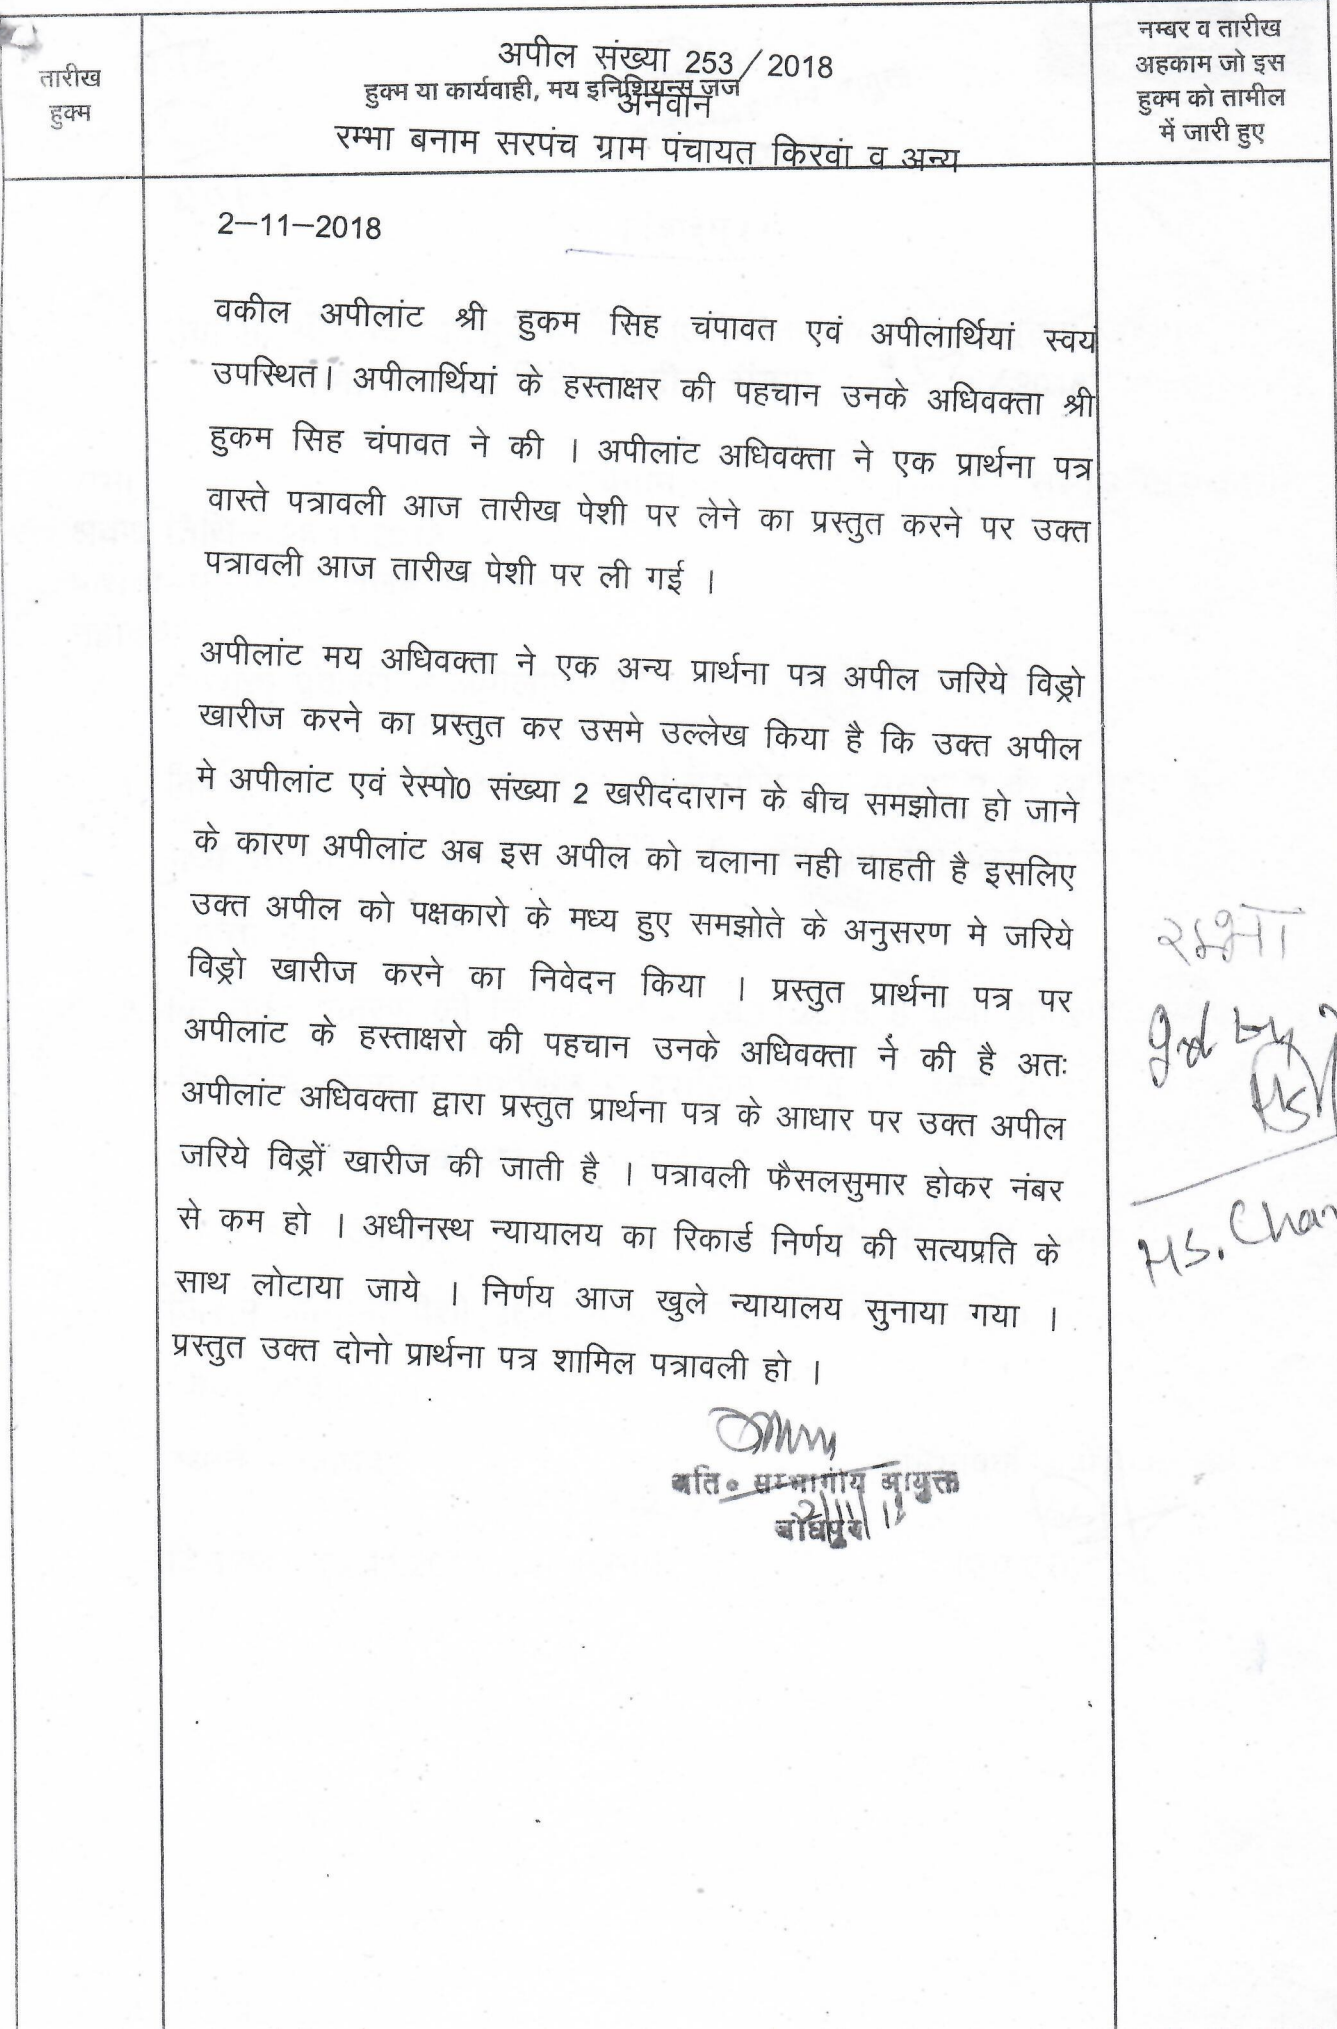 तारीख
हुक्म
अपील संख्या 253/2018
हुक्म या कार्यवाही, मय इनिशियन्स जज
अनवान
रम्भा बनाम सरपंच ग्राम पंचायत किरवां व अन्य
नम्बर व तारीख
अहकाम जो इस
हुक्म को तामील
में जारी हुए
2–11–2018
वकील अपीलांट श्री हुकम सिह चंपावत एवं अपीलार्थियां स्वयं
उपस्थित। अपीलार्थियां के हस्ताक्षर की पहचान उनके अधिवक्ता श्री
हुकम सिह चंपावत ने की । अपीलांट अधिवक्ता ने एक प्रार्थना पत्र
वास्ते पत्रावली आज तारीख पेशी पर लेने का प्रस्तुत करने पर उक्त
पत्रावली आज तारीख पेशी पर ली गई ।
अपीलांट मय अधिवक्ता ने एक अन्य प्रार्थना पत्र अपील जरिये विड्रो
खारीज करने का प्रस्तुत कर उसमे उल्लेख किया है कि उक्त अपील
मे अपीलांट एवं रेस्पो0 संख्या 2 खरीददारान के बीच समझोता हो जाने
के कारण अपीलांट अब इस अपील को चलाना नही चाहती है इसलिए
उक्त अपील को पक्षकारो के मध्य हुए समझोते के अनुसरण मे जरिये
विड्रो खारीज करने का निवेदन किया । प्रस्तुत प्रार्थना पत्र पर
अपीलांट के हस्ताक्षरो की पहचान उनके अधिवक्ता ने की है अतः
अपीलांट अधिवक्ता द्वारा प्रस्तुत प्रार्थना पत्र के आधार पर उक्त अपील
जरिये विड्रों खारीज की जाती है । पत्रावली फैसलसुमार होकर नंबर
से कम हो । अधीनस्थ न्यायालय का रिकार्ड निर्णय की सत्यप्रति के
साथ लोटाया जाये । निर्णय आज खुले न्यायालय सुनाया गया ।
प्रस्तुत उक्त दोनो प्रार्थना पत्र शामिल पत्रावली हो ।
रम्भा
by
HS. Chan
अति॰ सम्भागीय आयुक्त
2/11/18
जोधपुर